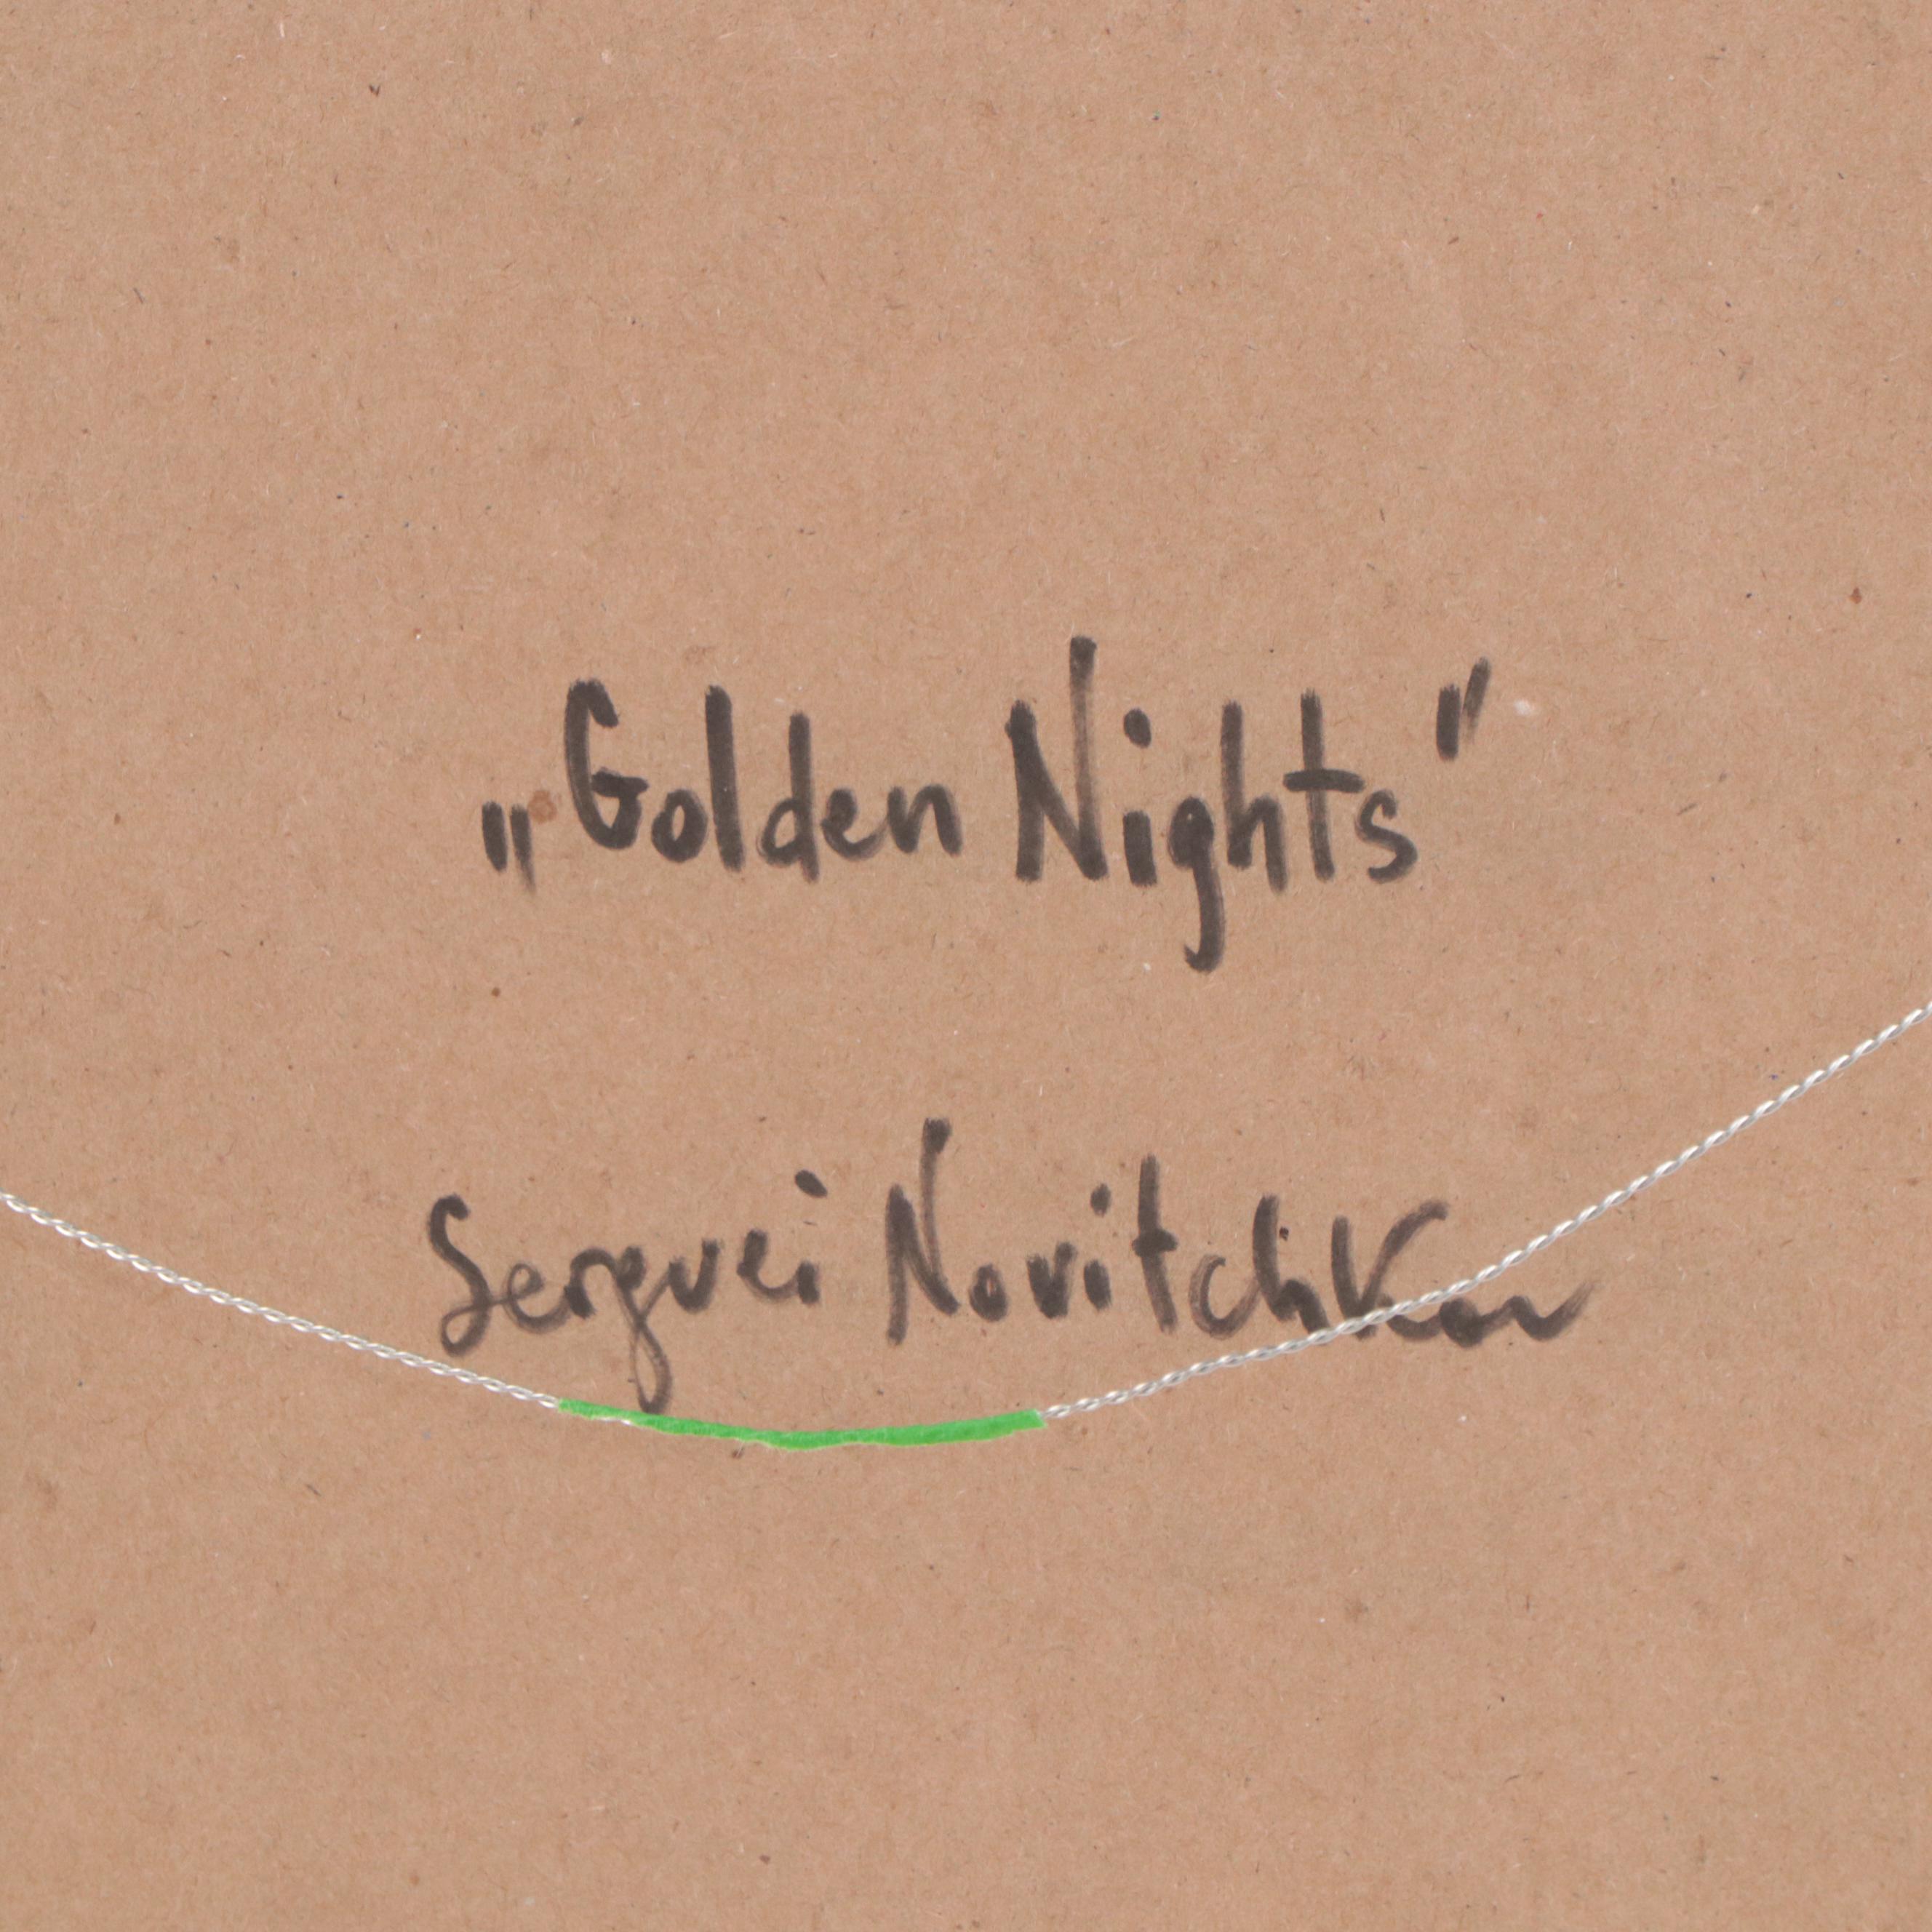 „Golden Nights"
Serguei Novitchkov